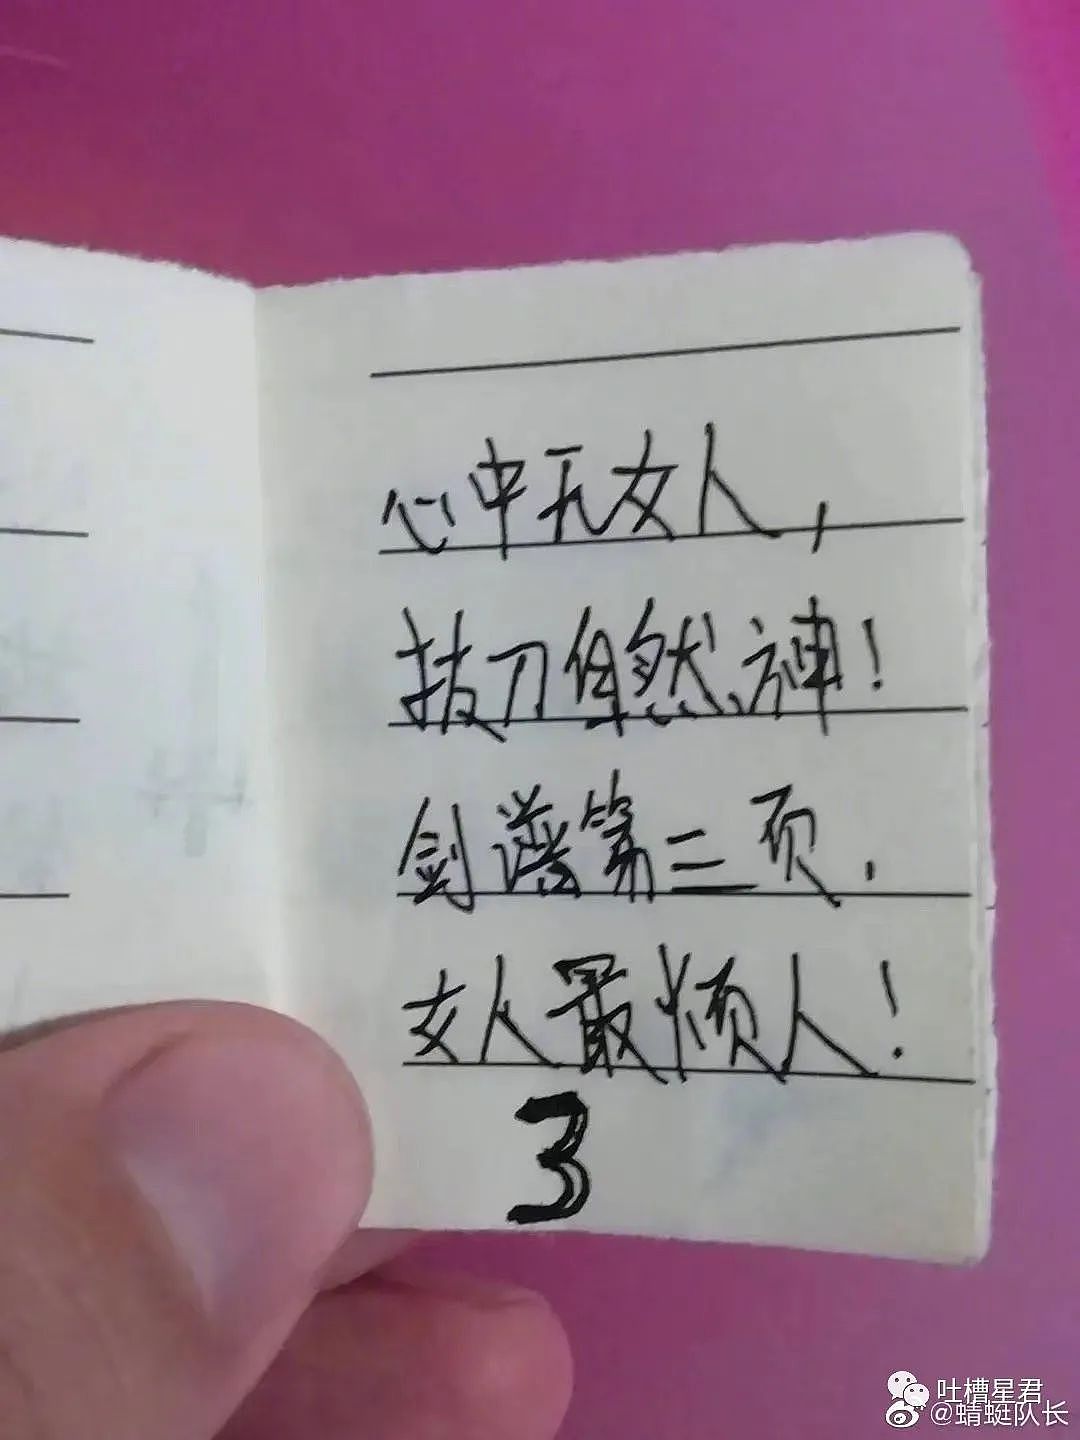 心中无女人，
拔刀自然神！
剑谱第二页，
女人最烦人！
3
吐槽星君
@蜻蜓队长